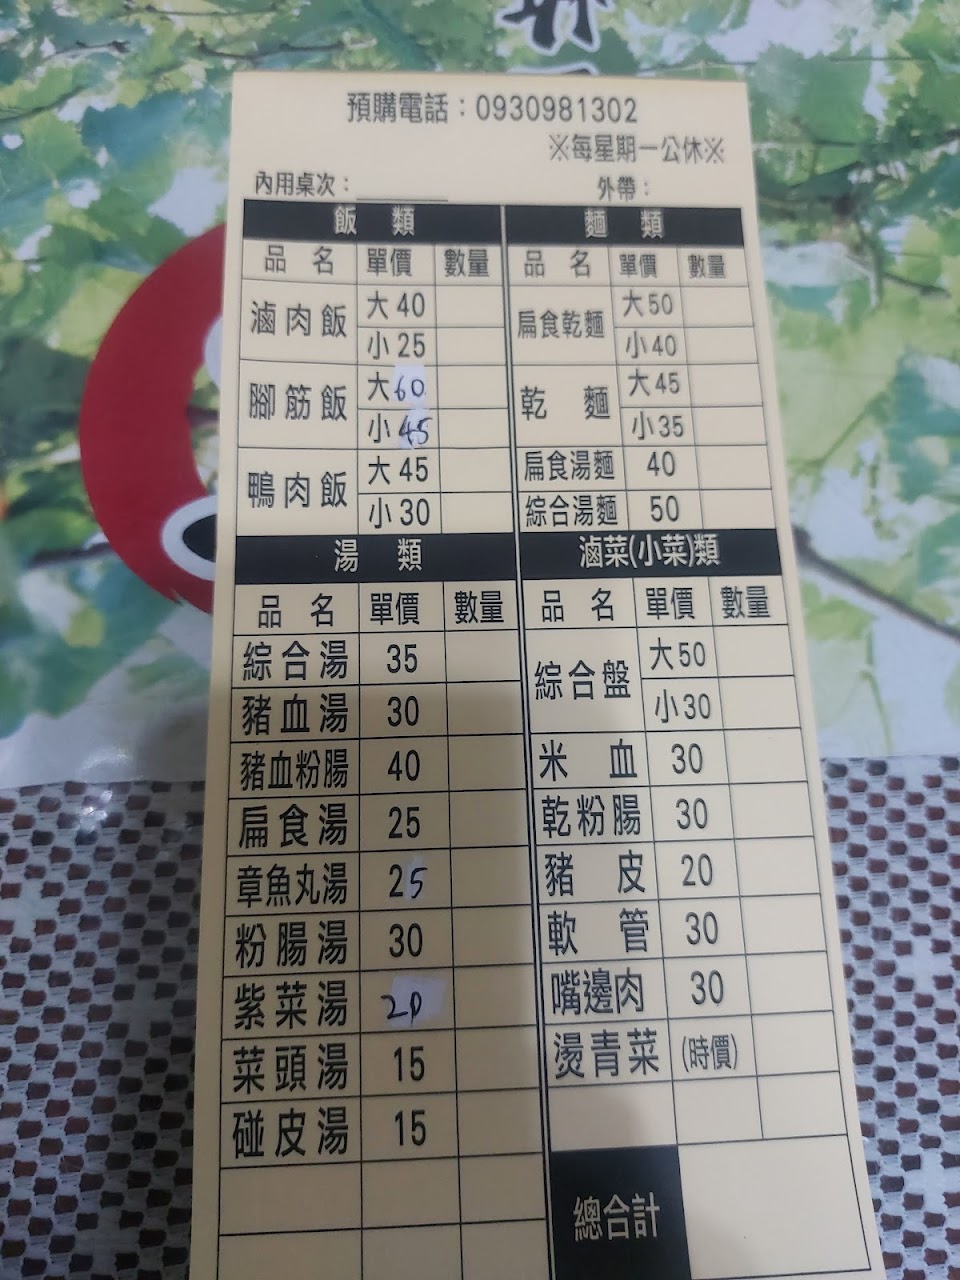 預購電話：0930981302
※每星期一公休※
內用桌次：________ 外帶：
飯 類
品 名 單價 數量
滷肉飯 大40
小25
腳筋飯 大60
小45
鴨肉飯 大45
小30
麵 類
品 名 單價 數量
扁食乾麵 大50
小40
乾 麵 大45
小35
扁食湯麵 40
綜合湯麵 50
湯 類
品 名 單價 數量
綜合湯 35
豬血湯 30
豬血粉腸 40
扁食湯 25
章魚丸湯 25
粉腸湯 30
紫菜湯 20
菜頭湯 15
碰皮湯 15
滷菜(小菜)類
品 名 單價 數量
綜合盤 大50
小30
米 血 30
乾粉腸 30
豬 皮 20
軟 管 30
嘴邊肉 30
燙青菜 (時價)
總合計